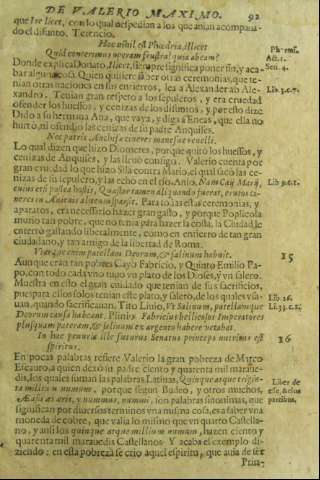 DE VALERIO MAXIMO. 92
que Ire licet, con lo qual despedian a los que auian acompaña-
do el difunto. Terencio.
Hoc nihil est Phædria, Ilicet
Quid conterimus operam frustra? quin abeam?
Donde explica Donato, Ilicet, siempre significa poner fin, y aca-
bar algun acto. Quien quisiere saber otras ceremonias, que te-
nian otras naciones en sus entierros, lea a Alexander ab Ale-
xandro. Tenian gran respeto a los sepulcros, y era crueldad
ofender los huessos, y cenizas de los difuntos, y por esto dize
Dido a su hermana Ana, que vaya, y diga a Eneas, que ella no
hurtò, ni ofendio las cenizas de su padre Anquises.
Nec patris Anchisæ cineres manesue reuelli.
Lo qual dizen que hizo Diomedes, porque quitò los huessos, y
cenizas de Anquises, y las lleuò consigo. Valerio cuenta por
gran crueldad lo que hizo Sila contra Mario, el qual sacò las ce-
nizas de su sepulcro, y las echò en el rio Anio. Nam Caij Marij
cineres
Para todas estas ceremonias, y
aparatos, era necessario hazer gran gasto, y porque Poplicola
murio tan pobre, que no tenia para hazerse la costa, la Ciudad le
enterro gastando liberalmente, como en entierro de tan gran
ciudadano, y tan amigo de la libertad de Roma.
Vterque enim patellam Deorum, & salinum habuit.
Aunque eran tan pobres Cayo Fabricio, y Quinto Emilio Pa-
po, con todo cada vno tuuo vn plato de los Dioses, y vn salero.
Muestra en esto el gran cuidado que tenian de sus sacrificios,
pues para ellos solos tenian este plato, y salero, de los quales vsa-
uan, quando sacrificauan. Tito Liuio, Vt salinum, patellamque
Deorum causa habeant. Plinio, Fabricius bellicosos Imperatores
plusquam pateram, & salinum ex argento habere vetabat.
In hac penuria ille futurus Senatus princeps nutritus est
spiritus.
En pocas palabras refiere Valerio la gran pobreza de Marco
Escauro, a quien dexò su padre ciento y quarenta mil maraue-
dis, los quales suman las palabras Latinas, Quinque atque trigin-
ta millia nummum, porque segun Budeo, y otros muchos,
Æsa, as æris, y nummus, nummi, son palabras sinonimas, que
significan por diuersos terminos vna misma cosa, es a saber vna
moneda de cobre, que valia lo mismo que vn quarto Castella-
no, y assi los quinque atque millium nummum, hazen ciento y
quarenta mil marauedis Castellanos. Y acaba el exemplo di-
ziendo: en esta pobreza se criò aquel espiritu, que auia de ser
Prin-
Lib. 3. c. 7.
Lib. 9. c. 2.
15
Lib. 26.
Li. 33. c. 12.
16